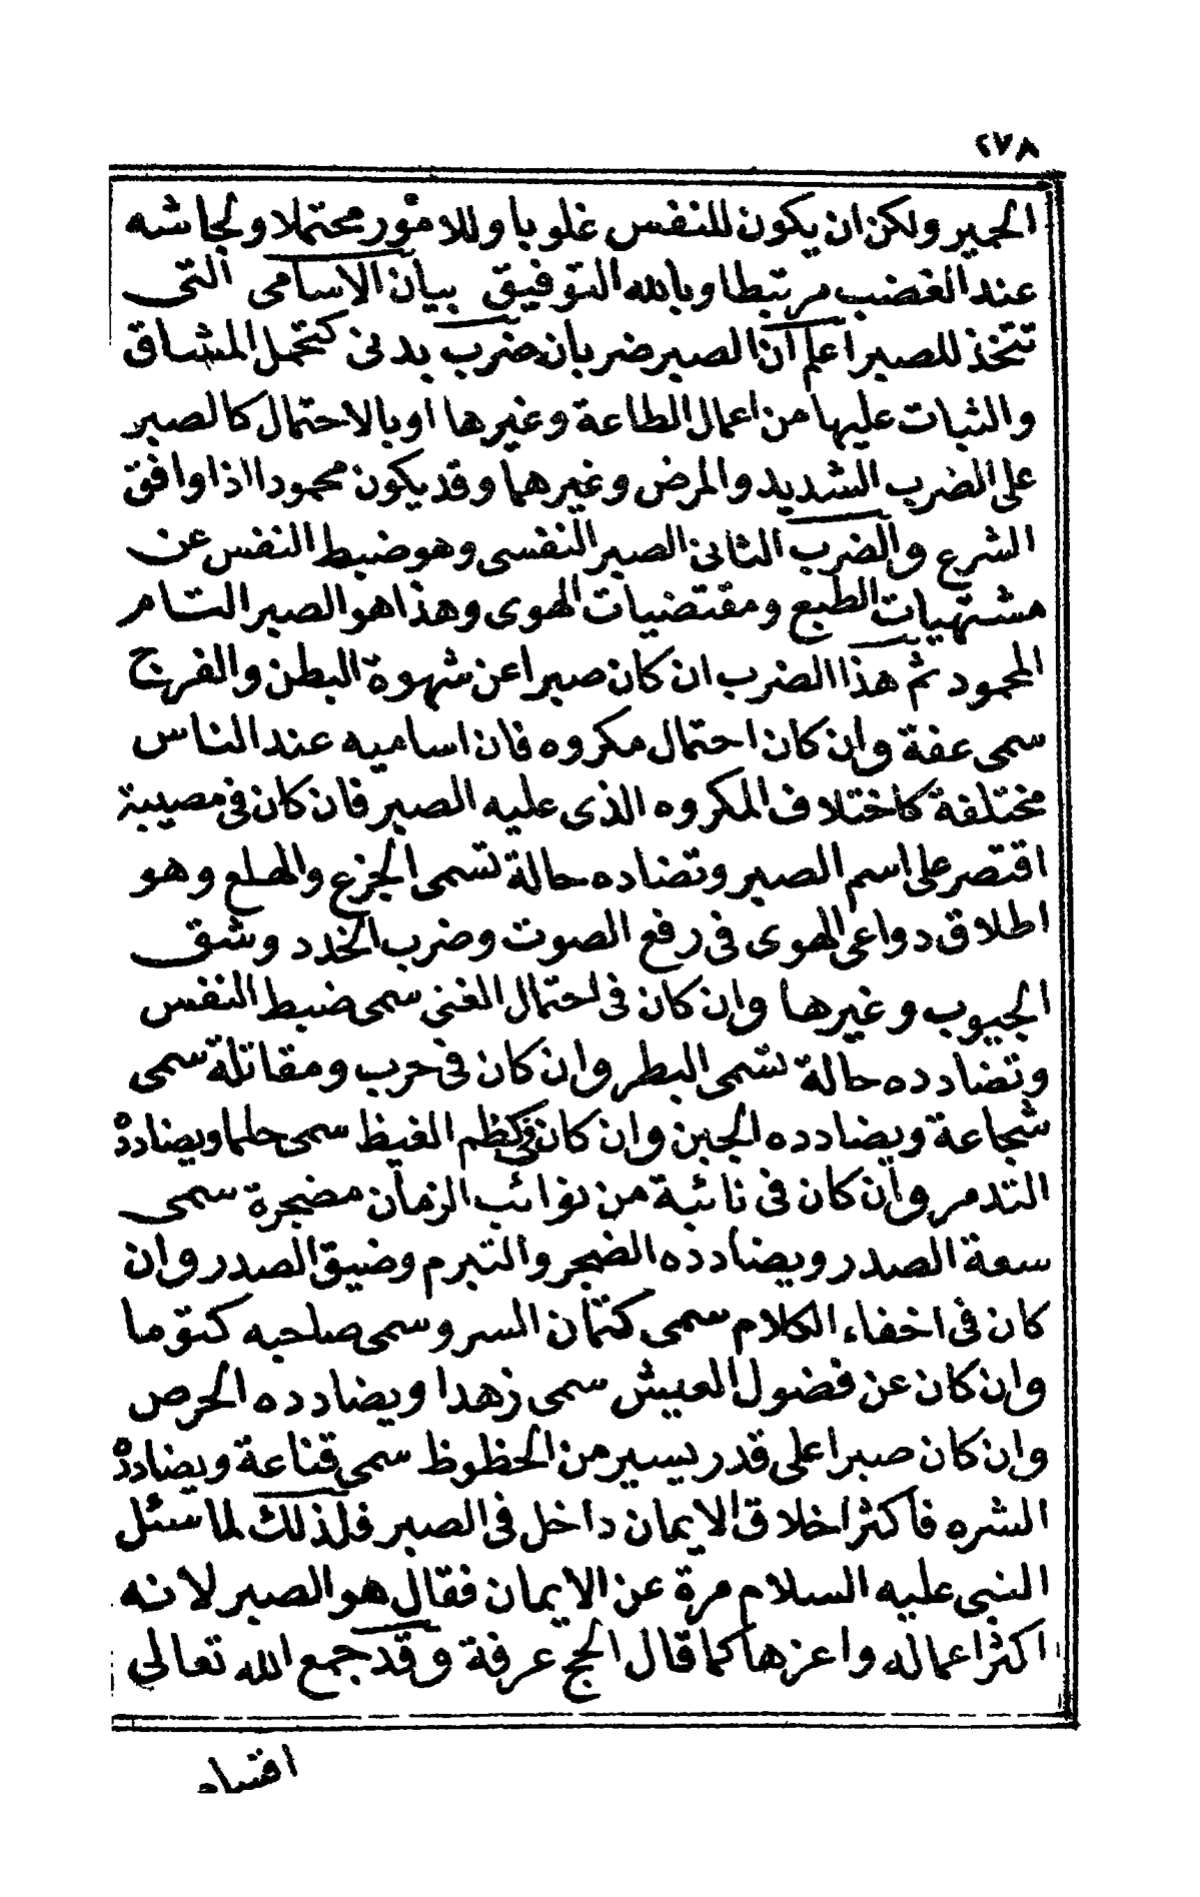 ٢٧٨
الحمير ولكن ان يكون للنفس غلوبا وللامور محتملا ولجاشه
عند الغضب مرتبطا وبالله التوفيق بيان الاسامى التى
تتخذ للصبر اعلم ان الصبر ضربان ضرب بدنى كتحمل المشاق
والثبات عليها من اعمال الطاعة وغيرها او بالاحتمال كالصبر
على الضرب الشديد والمرض وغيرهما وقد يكون محمودا اذا وافق
الشرع والضرب الثانى الصبر النفسى وهو ضبط النفس عن
مشتهيات الطبع ومقتضيات الهوى وهذا هو الصبر التام
المحمود ثم هذا الضرب ان كان صبرا عن شهوة البطن والفرج
سمى عفة وان كان احتمال مكروه فان اساميه عند الناس
مختلفة كاختلاف المكروه الذى عليه الصبر فان كان فى مصيبة
اقتصر على اسم الصبر وتضاده حالة تسمى الجزع والهلع وهو
اطلاق دواعى الهوى فى رفع الصوت وضرب الخدد وشق
الجيوب وغيرها وان كان فى احتمال الغنى سمى ضبط النفس
وتضادده حالة تسمى البطر وان كان فى حرب ومقاتلة سمى
شجاعة ويضادده الجبن وان كان فى كظم الغيظ سمى حلما ويضادده
التدمر وان كان فى نائبة من نوائب الزمان مضجرة سمى
سعة الصدر ويضادده الضجر والتبرم وضيق الصدر وان
كان فى اخفاء الكلام سمى كتمان السر وسمى صاحبه كتوما
وان كان عن فضول العيش سمى زهدا ويضادده الحرص
وان كان صبرا على قدر يسير من الحظوظ سمى قناعة ويضادده
الشره فاكثر اخلاق الايمان داخل فى الصبر فلذلك لما سئل
النبى عليه السلام مرة عن الايمان فقال هو الصبر لانه
اكثر اعماله واعزها كما قال الحج عرفة وقد جمع الله تعالى
اقسام